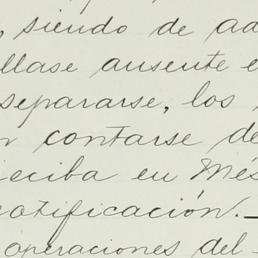 , siendo de ad
llase ausente e
separarse, los
contarse de
eciba en Méx
ratificación. _
operaciones del -